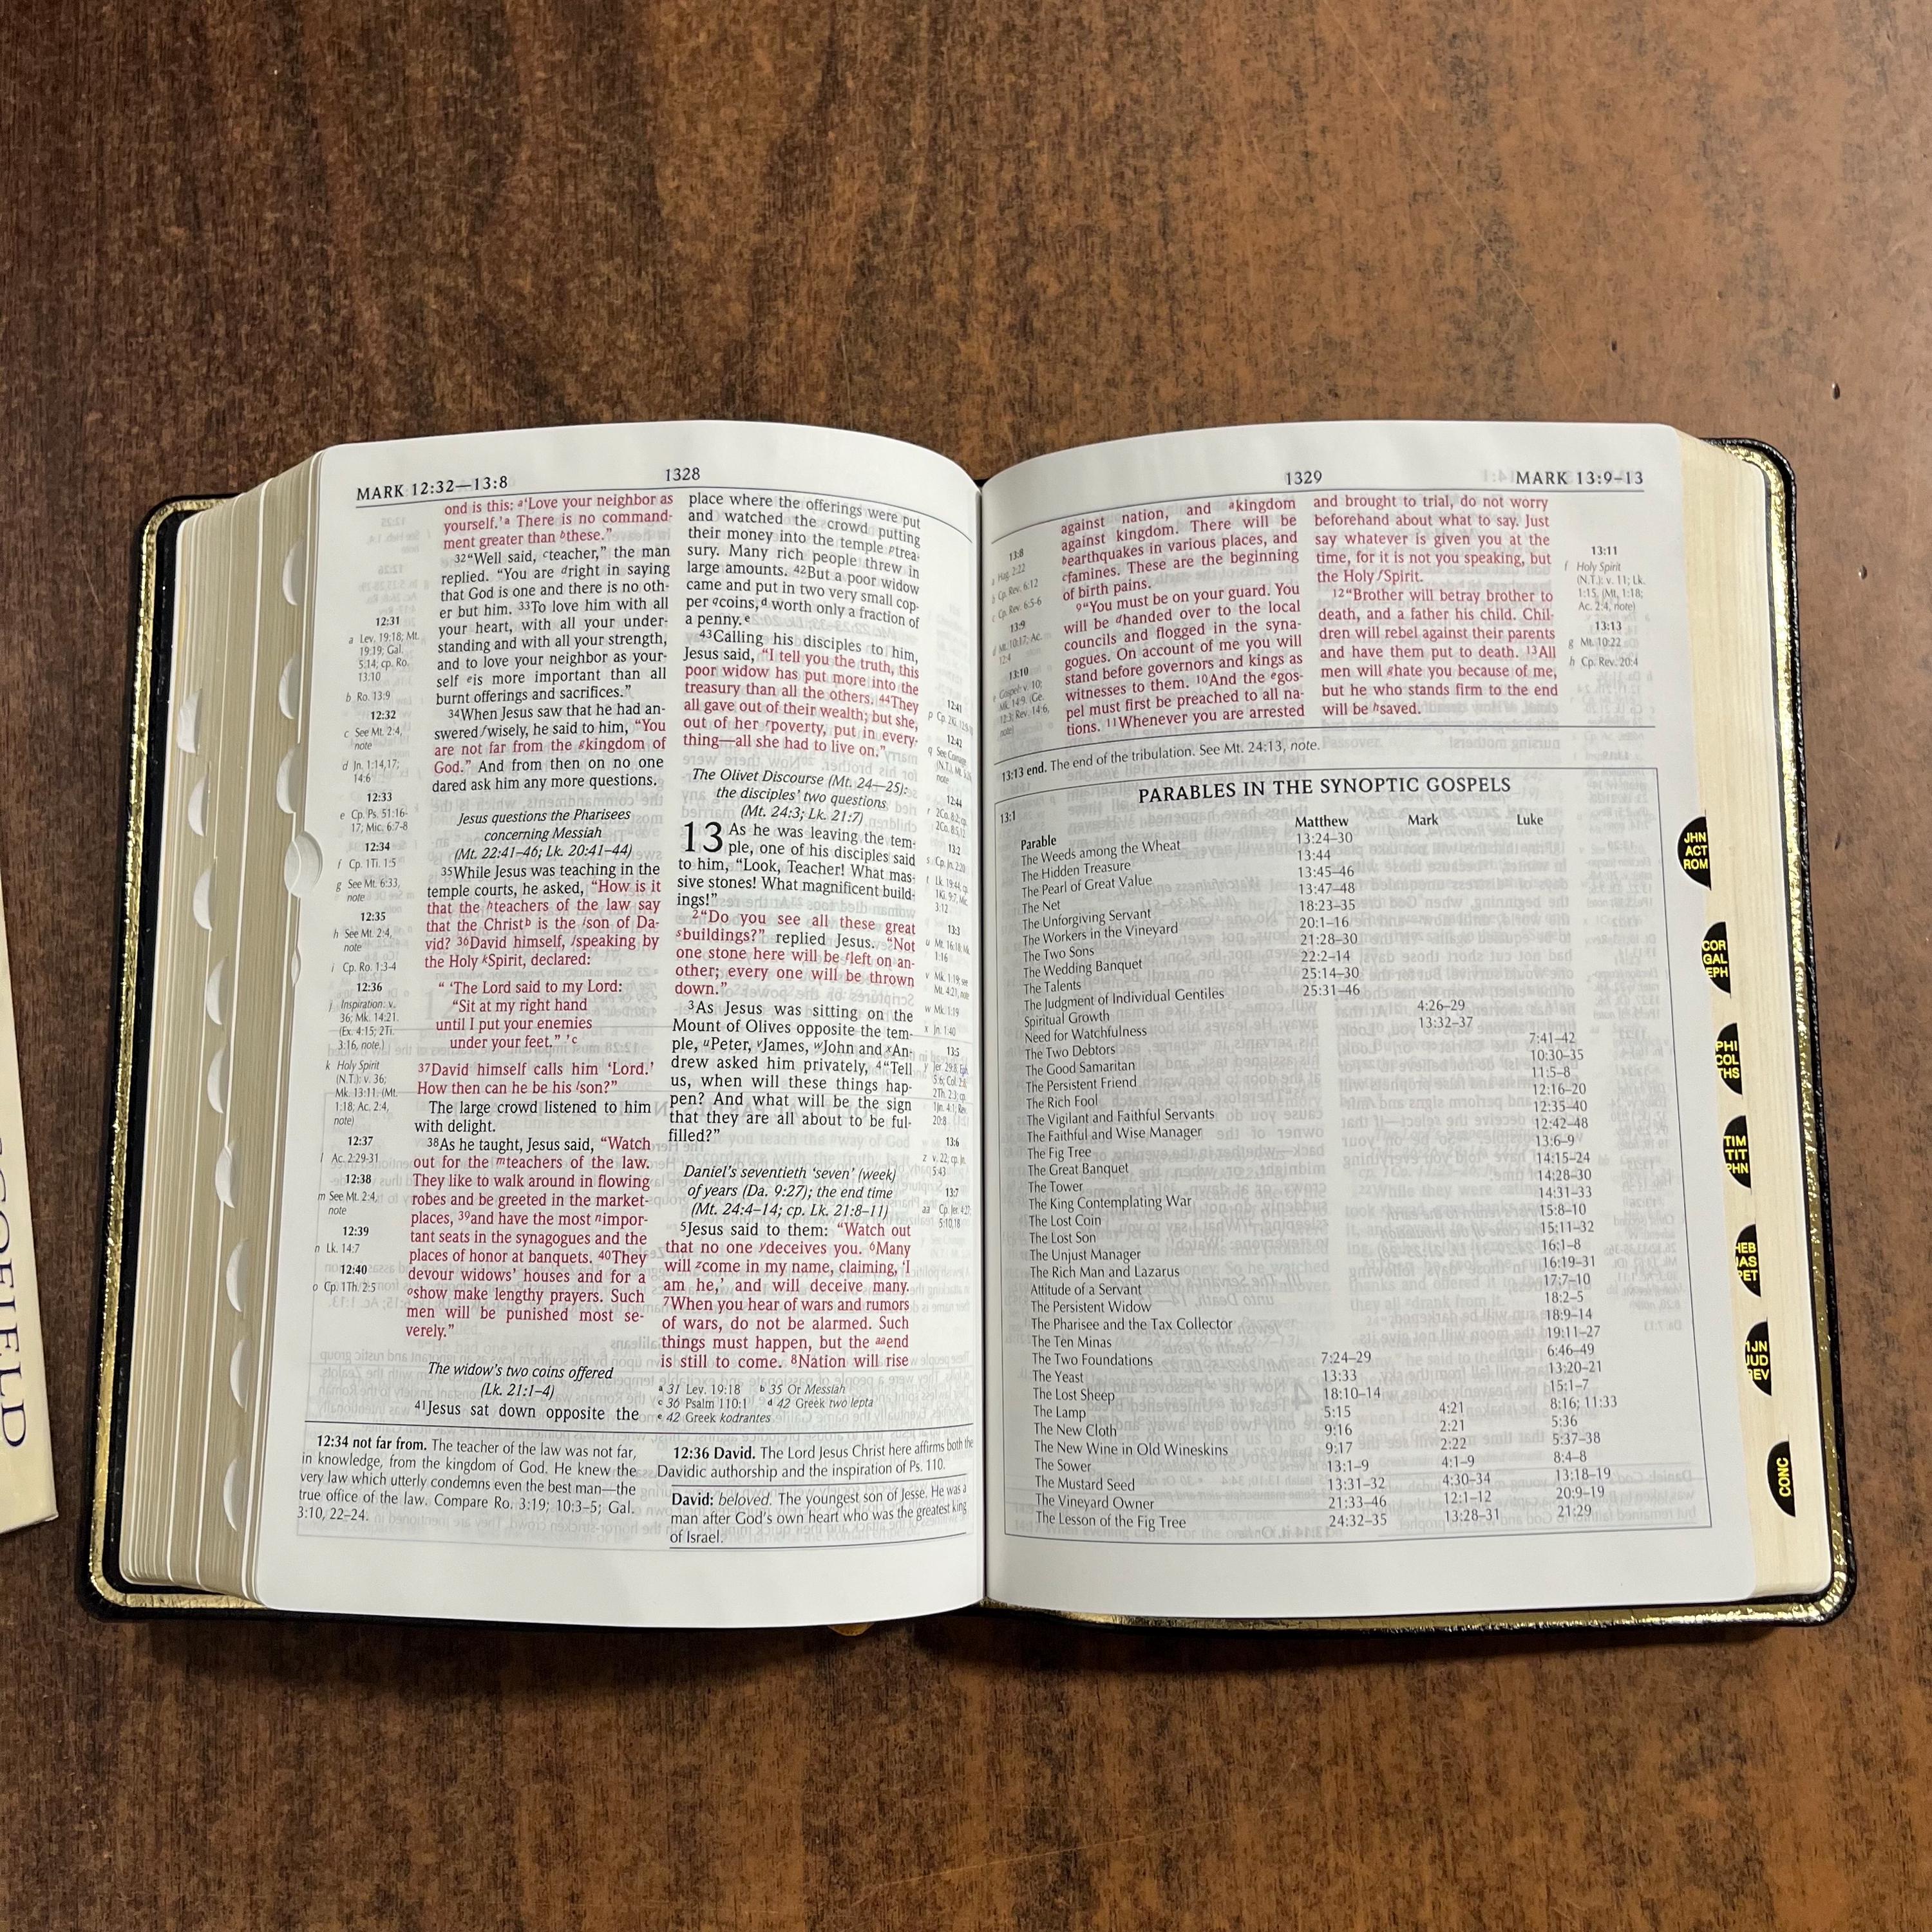 MARK 12:32—13:8
1328
12:31
a Lev. 19:18; Mt.
19:19; Gal.
5:14; cp. Ro.
13:10
b Ro. 13:9
12:32
c See Mt. 2:4,
note
d Jn. 1:14,17;
14:6
12:33
e Cp. Ps. 51:16-
17; Mic. 6:7-8
12:34
f Cp. 1Ti. 1:5
g See Mt. 6:33,
note
12:35
h See Mt. 2:4,
note
i Cp. Ro. 1:3-4
12:36
j Inspiration: v.
36; Mk. 14:21.
(Ex. 4:15; 2Ti.
3:16, note)
k Holy Spirit
(N.T.): v. 36;
Mk. 13:11. (Mt.
1:18; Ac. 2:4,
note)
12:37
l Ac. 2:29-31
12:38
m See Mt. 2:4,
note
12:39
n Lk. 14:7
12:40
o Cp. 1Th. 2:5
ond is this: a'Love your neighbor as
yourself.'a There is no command-
ment greater than bthese."
32"Well said, cteacher," the man
replied. "You are dright in saying
that God is one and there is no oth-
er but him. 33To love him with all
your heart, with all your under-
standing and with all your strength,
and to love your neighbor as your-
self eis more important than all
burnt offerings and sacrifices."
34When Jesus saw that he had an-
swered fwisely, he said to him, "You
are not far from the gkingdom of
God." And from then on no one
dared ask him any more questions.
Jesus questions the Pharisees
concerning Messiah
(Mt. 22:41-46; Lk. 20:41-44)
35While Jesus was teaching in the
temple courts, he asked, "How is it
that the hteachers of the law say
that the Christb is the ison of Da-
vid? 36David himself, jspeaking by
the Holy kSpirit, declared:
" 'The Lord said to my Lord:
"Sit at my right hand
until I put your enemies
under your feet." 'c
37David himself calls him 'Lord.'
How then can he be his lson?"
The large crowd listened to him
with delight.
38As he taught, Jesus said, "Watch
out for the mteachers of the law.
They like to walk around in flowing
robes and be greeted in the market-
places, 39and have the most nimpor-
tant seats in the synagogues and the
places of honor at banquets. 40They
devour widows' houses and for a
oshow make lengthy prayers. Such
men will be punished most se-
verely."
The widow's two coins offered
(Lk. 21:1-4)
41Jesus sat down opposite the
place where the offerings were put
and watched the crowd putting
their money into the temple ptrea-
sury. Many rich people threw in
large amounts. 42But a poor widow
came and put in two very small cop-
per qcoins,d worth only a fraction of
a penny.e
43Calling his disciples to him,
Jesus said, "I tell you the truth, this
poor widow has put more into the
treasury than all the others. 44They
all gave out of their wealth; but she,
out of her rpoverty, put in every-
thing—all she had to live on."
The Olivet Discourse (Mt. 24—25):
the disciples' two questions
(Mt. 24:3; Lk. 21:7)
13 As he was leaving the tem-
ple, one of his disciples said
to him, "Look, Teacher! What mas-
sive stones! What magnificent build-
ings!"
2"Do you see all these great
sbuildings?" replied Jesus. "Not
one stone here will be tleft on an-
other; every one will be thrown
down."
3As Jesus was sitting on the
Mount of Olives opposite the tem-
ple, uPeter, vJames, wJohn and xAn-
drew asked him privately, 4"Tell
us, when will these things hap-
pen? And what will be the sign
that they are all about to be ful-
filled?"
Daniel's seventieth 'seven' (week)
of years (Da. 9:27); the end time
(Mt. 24:4-14; cp. Lk. 21:8-11)
5Jesus said to them: "Watch out
that no one ydeceives you. 6Many
will zcome in my name, claiming, 'I
am he,' and will deceive many.
7When you hear of wars and rumors
of wars, do not be alarmed. Such
things must happen, but the aaend
is still to come. 8Nation will rise
a 31 Lev. 19:18 b 35 Or Messiah
c 36 Psalm 110:1 d 42 Greek two lepta
e 42 Greek kodrantes
12:41
12:42
12:44
13:2
13:3
w Mk. 1:19
x Jn. 1:40
13:5
13:6
13:7
12:34 not far from. The teacher of the law was not far,
in knowledge, from the kingdom of God. He knew the
very law which utterly condemns even the best man—the
true office of the law. Compare Ro. 3:19; 10:3-5; Gal.
3:10, 22-24.
12:36 David. The Lord Jesus Christ here affirms both the
Davidic authorship and the inspiration of Ps. 110.
David: beloved. The youngest son of Jesse. He was a
man after God's own heart who was the greatest king
of Israel.
1329
MARK 13:9-13
13:8
a Hag. 2:22
b Cp. Rev. 6:12
c Cp. Rev. 6:5-6
13:9
d Mt. 10:17; Ac.
12:4
13:10
against nation, and akingdom
against kingdom. There will be
bearthquakes in various places, and
cfamines. These are the beginning
of birth pains.
9"You must be on your guard. You
will be dhanded over to the local
councils and flogged in the syna-
gogues. On account of me you will
stand before governors and kings as
witnesses to them. 10And the egos-
pel must first be preached to all na-
tions. 11Whenever you are arrested
and brought to trial, do not worry
beforehand about what to say. Just
say whatever is given you at the
time, for it is not you speaking, but
the Holy fSpirit.
12"Brother will betray brother to
death, and a father his child. Chil-
dren will rebel against their parents
and have them put to death. 13All
men will ghate you because of me,
but he who stands firm to the end
will be hsaved.
13:11
f Holy Spirit
(N.T.): v. 11; Lk.
1:15. (Mt. 1:18;
Ac. 2:4, note)
13:13
g Mt. 10:22
h Cp. Rev. 20:4
13:13 end. The end of the tribulation. See Mt. 24:13, note.
13:1
PARABLES IN THE SYNOPTIC GOSPELS
Parable Matthew Mark Luke
The Weeds among the Wheat 13:24-30
The Hidden Treasure 13:44
The Pearl of Great Value 13:45-46
The Net 13:47-48
The Unforgiving Servant 18:23-35
The Workers in the Vineyard 20:1-16
The Two Sons 21:28-30
The Wedding Banquet 22:2-14
The Talents 25:14-30
The Judgment of Individual Gentiles 25:31-46
Spiritual Growth 4:26-29
Need for Watchfulness 13:32-37
The Two Debtors 7:41-42
The Good Samaritan 10:30-35
The Persistent Friend 11:5-8
The Rich Fool 12:16-20
The Vigilant and Faithful Servants 12:35-40
The Faithful and Wise Manager 12:42-48
The Fig Tree 13:6-9
The Great Banquet 14:15-24
The Tower 14:28-30
The King Contemplating War 14:31-33
The Lost Coin 15:8-10
The Lost Son 15:11-32
The Unjust Manager 16:1-8
The Rich Man and Lazarus 16:19-31
Attitude of a Servant 17:7-10
The Persistent Widow 18:2-5
The Pharisee and the Tax Collector 18:9-14
The Ten Minas 19:11-27
The Two Foundations 7:24-29 6:46-49
The Yeast 13:33 13:20-21
The Lost Sheep 18:10-14 15:1-7
The Lamp 5:15 4:21 8:16; 11:33
The New Cloth 9:16 2:21 5:36
The New Wine in Old Wineskins 9:17 2:22 5:37-38
The Sower 13:1-9 4:1-9 8:4-8
The Mustard Seed 13:31-32 4:30-34 13:18-19
The Vineyard Owner 21:33-46 12:1-12 20:9-19
The Lesson of the Fig Tree 24:32-35 13:28-31 21:29
JHN
ACT
ROM
COR
GAL
EPH
PHI
COL
THS
TIM
TIT
PHN
HEB
JAS
PET
1JN
JUD
REV
CONC